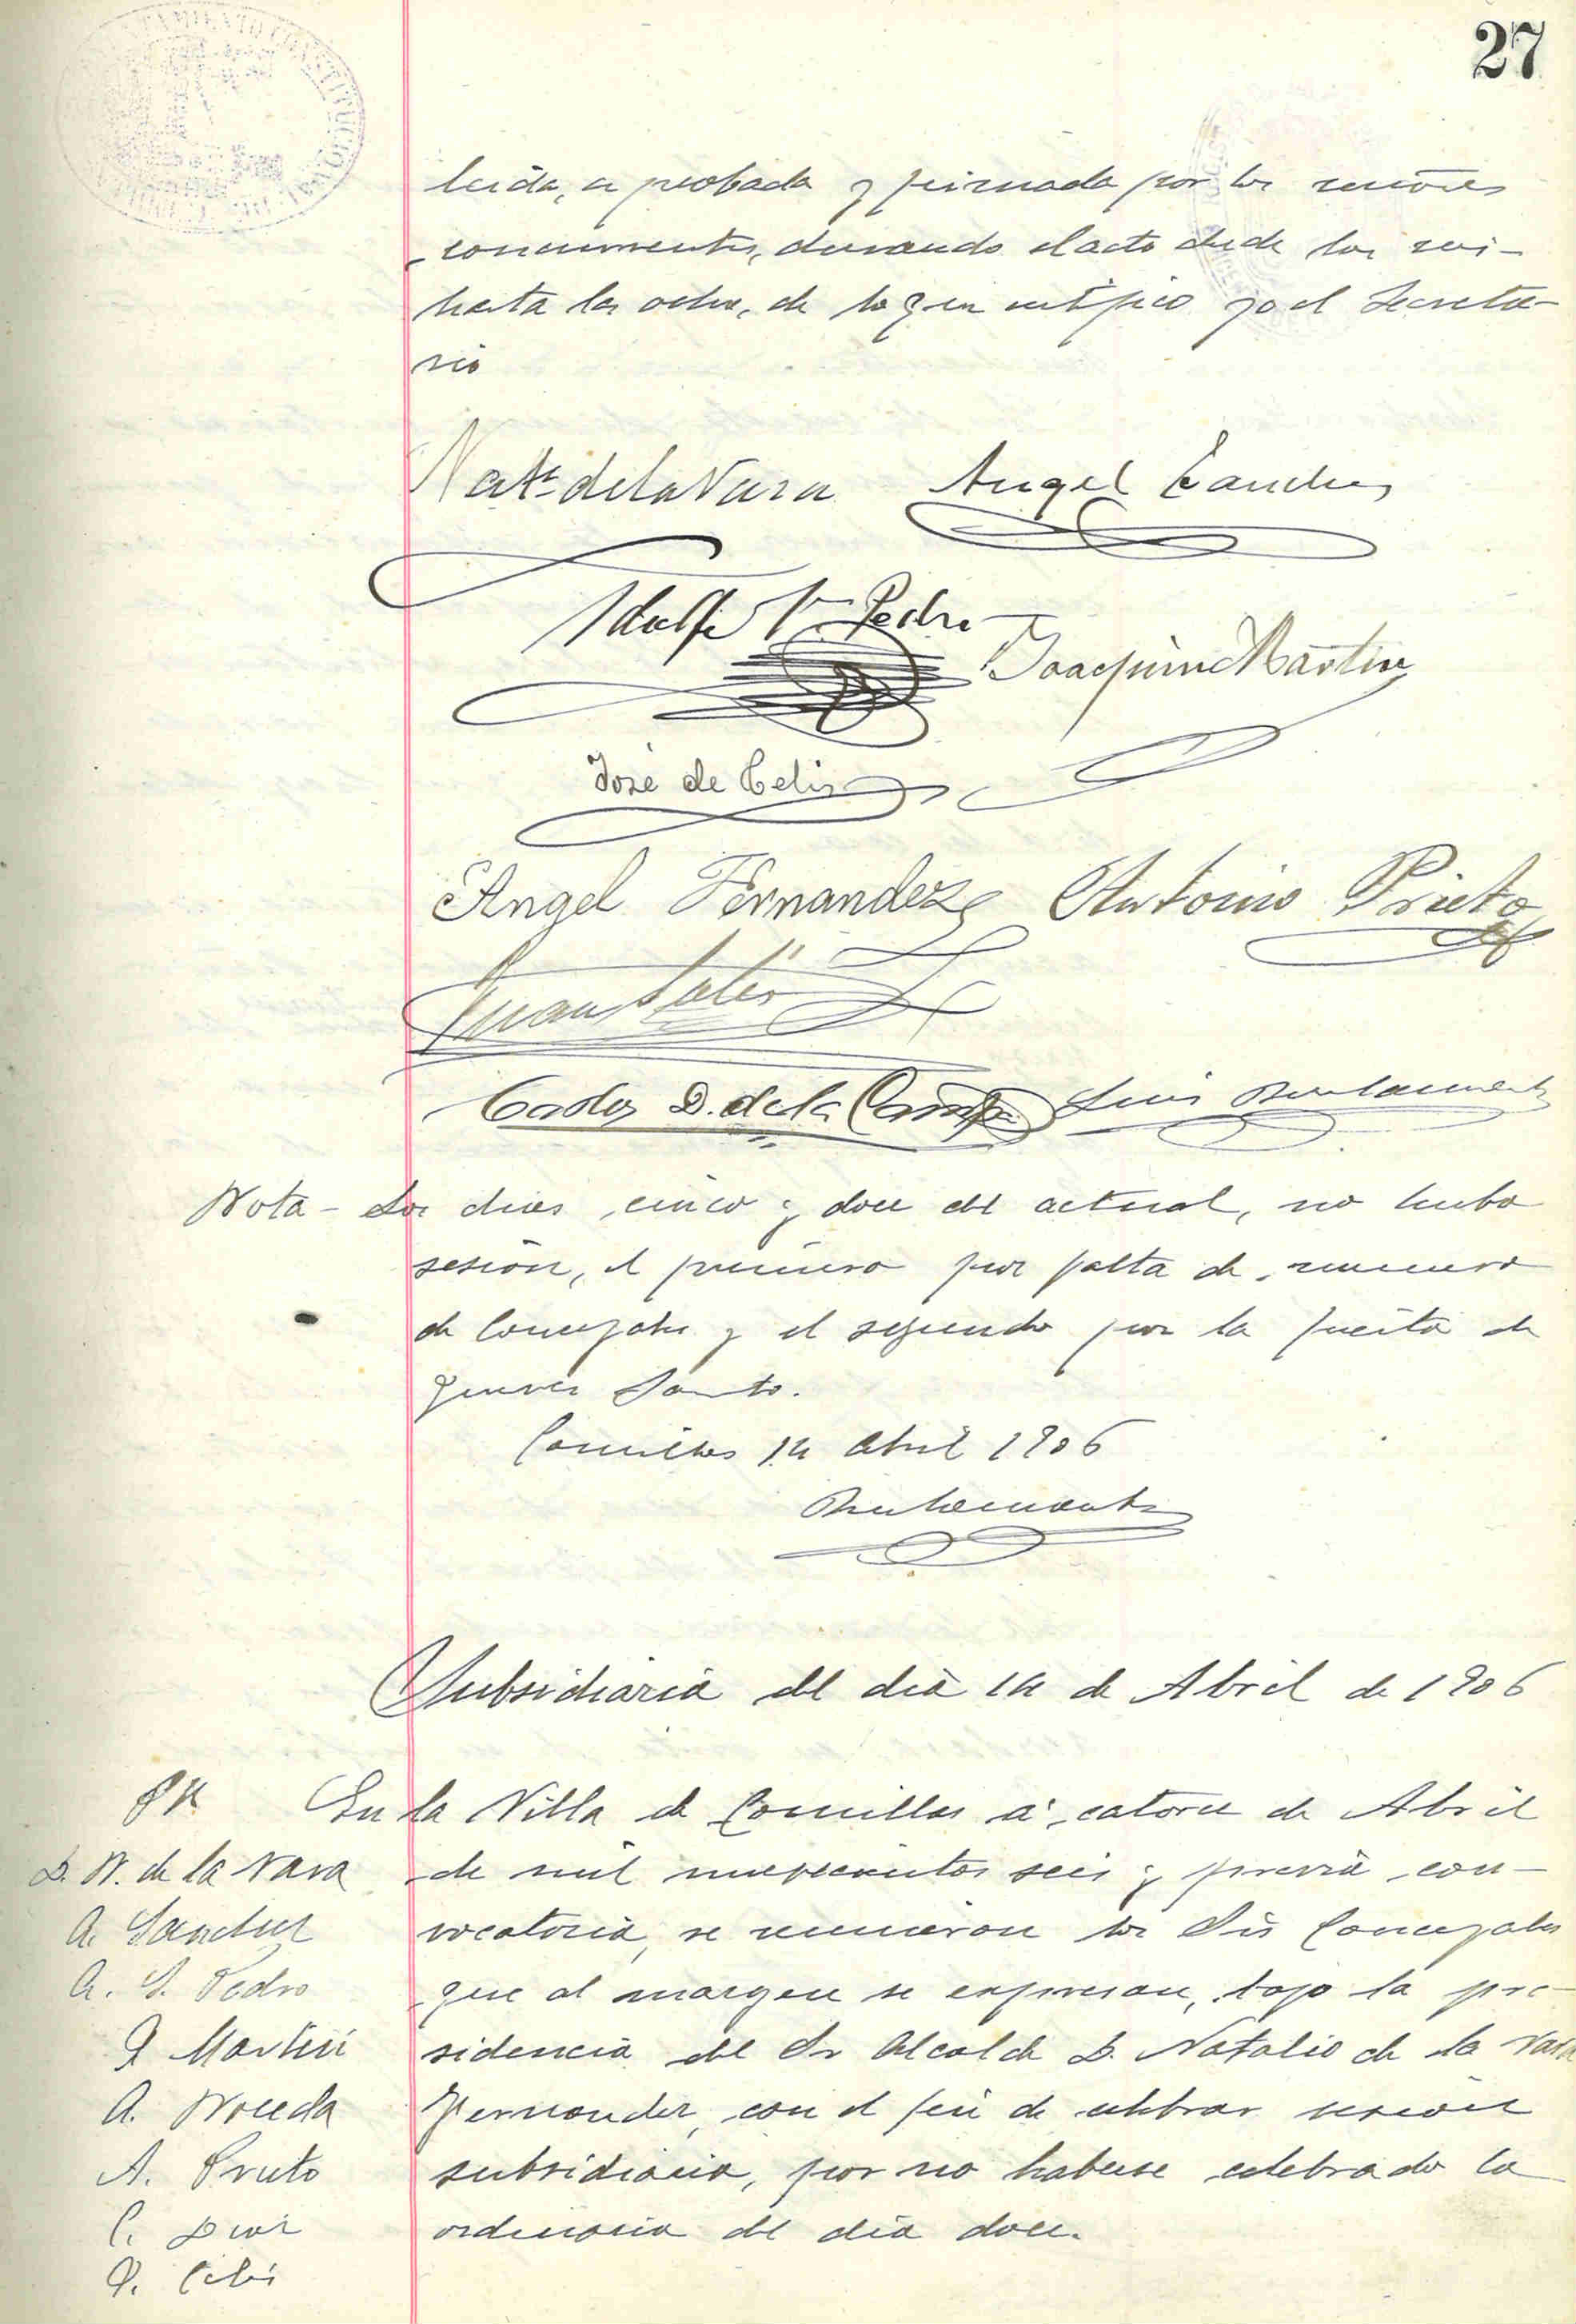 27
leida, aprobada y firmada por los señores
concurrentes, durando el acto desde las seis
hasta las ocho, de lo que certifico yo el Secreta-
rio
Nat.º de la Vara Angel Sanchez
Adolfo Sn Pedro
Joaquin Martin
José de Celis
Angel Fernandez Antonio Prieto
Juan Celis
Carlos D. de la Campa Luis Bustamante
Nota - Los dias cinco y doce del actual, no hubo
sesion, el primero por falta de numero
de Concejales y el segundo por la fiesta de
Jueves Santo.
Comillas 14 Abril 1906
Bustamante
Subsidiaria del dia 14 de Abril de 1906
En la Villa de Comillas á catorce de Abril
D. N. de la Vara de mil novecientos seis y previa con-
A. Sanchez vocatoria, se reunieron los Srs Concejales
A. S. Pedro que al margen se expresan, bajo la pre-
J Martin sidencia del Sr Alcalde D. Natalio de la Vara
A. Noceda Fernandez, con el fin de celebrar sesion
A. Prieto subsidiaria, por no haberse celebrado la
C. Diaz ordinaria del dia doce.
J. Celis